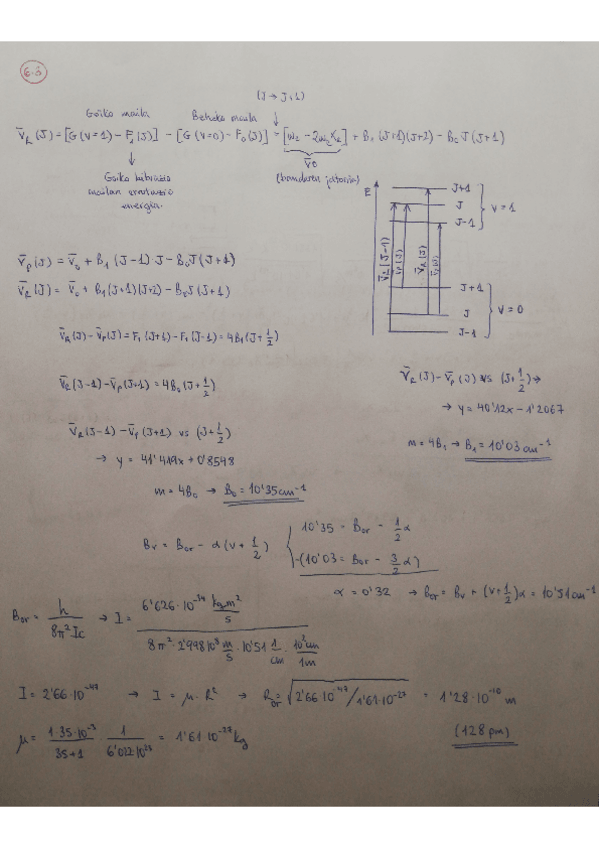 6.3
(J → J+1)
Goiko maila Beheko maila
ν̄R (J) = [G (v=1) - F1 (J)] - [G (v=0) - F0 (J)] = [ω2 - 2ω2 Xe] + B1 (J+1)(J+2) - B0 J (J+1)
ν̄0
(bandaren jatorria)
Goiko bibrazio
mailan errotazio
energia.
E
J+1
J
J-1
v=1
ν̄R (J-1)
ν̄P (J)
ν̄R (J)
J+1
J
J-1
v=0
ν̄P (J) = ν̄0 + B1 (J-1)·J - B0 J (J+1)
ν̄R (J) = ν̄0 + B1 (J+1)(J+2) - B0 J (J+1)
ν̄R (J) - ν̄P (J) = F1 (J+1) - F1 (J-1) = 4B1 (J+1/2)
ν̄R (J-1) - ν̄P (J+1) = 4B0 (J+1/2)
ν̄R (J-1) - ν̄P (J+1) vs (J+1/2)
→ y = 41'419x + 0'8598
m = 4B0 → B0 = 10'35 cm⁻¹
ν̄R (J) - ν̄P (J) vs (J+1/2) →
→ y = 40'12x - 1'2067
m = 4B1 → B1 = 10'03 cm⁻¹
Bv = Bor - α (v + 1/2)
10'35 = Bor - 1/2 α
-(10'03 = Bor - 3/2 α)
α = 0'32 → Bor = Bv + (v+1/2)α = 10'51 cm⁻¹
Bor = h / 8π² I c → I = 6'626·10⁻³⁴ kg m²/s / 8π²·2'998 10⁸ m/s · 10'51 1/cm · 10² cm/1m
I = 2'66·10⁻⁴⁷ → I = μ·R² → Ror = √(2'66 10⁻⁴⁷/1'61·10⁻²⁷) = 1'28·10⁻¹⁰ m
μ = 1·35·10⁻³ / 35+1 · 1 / 6'022·10²³ = 1'61 10⁻²⁷ kg
(128 pm)